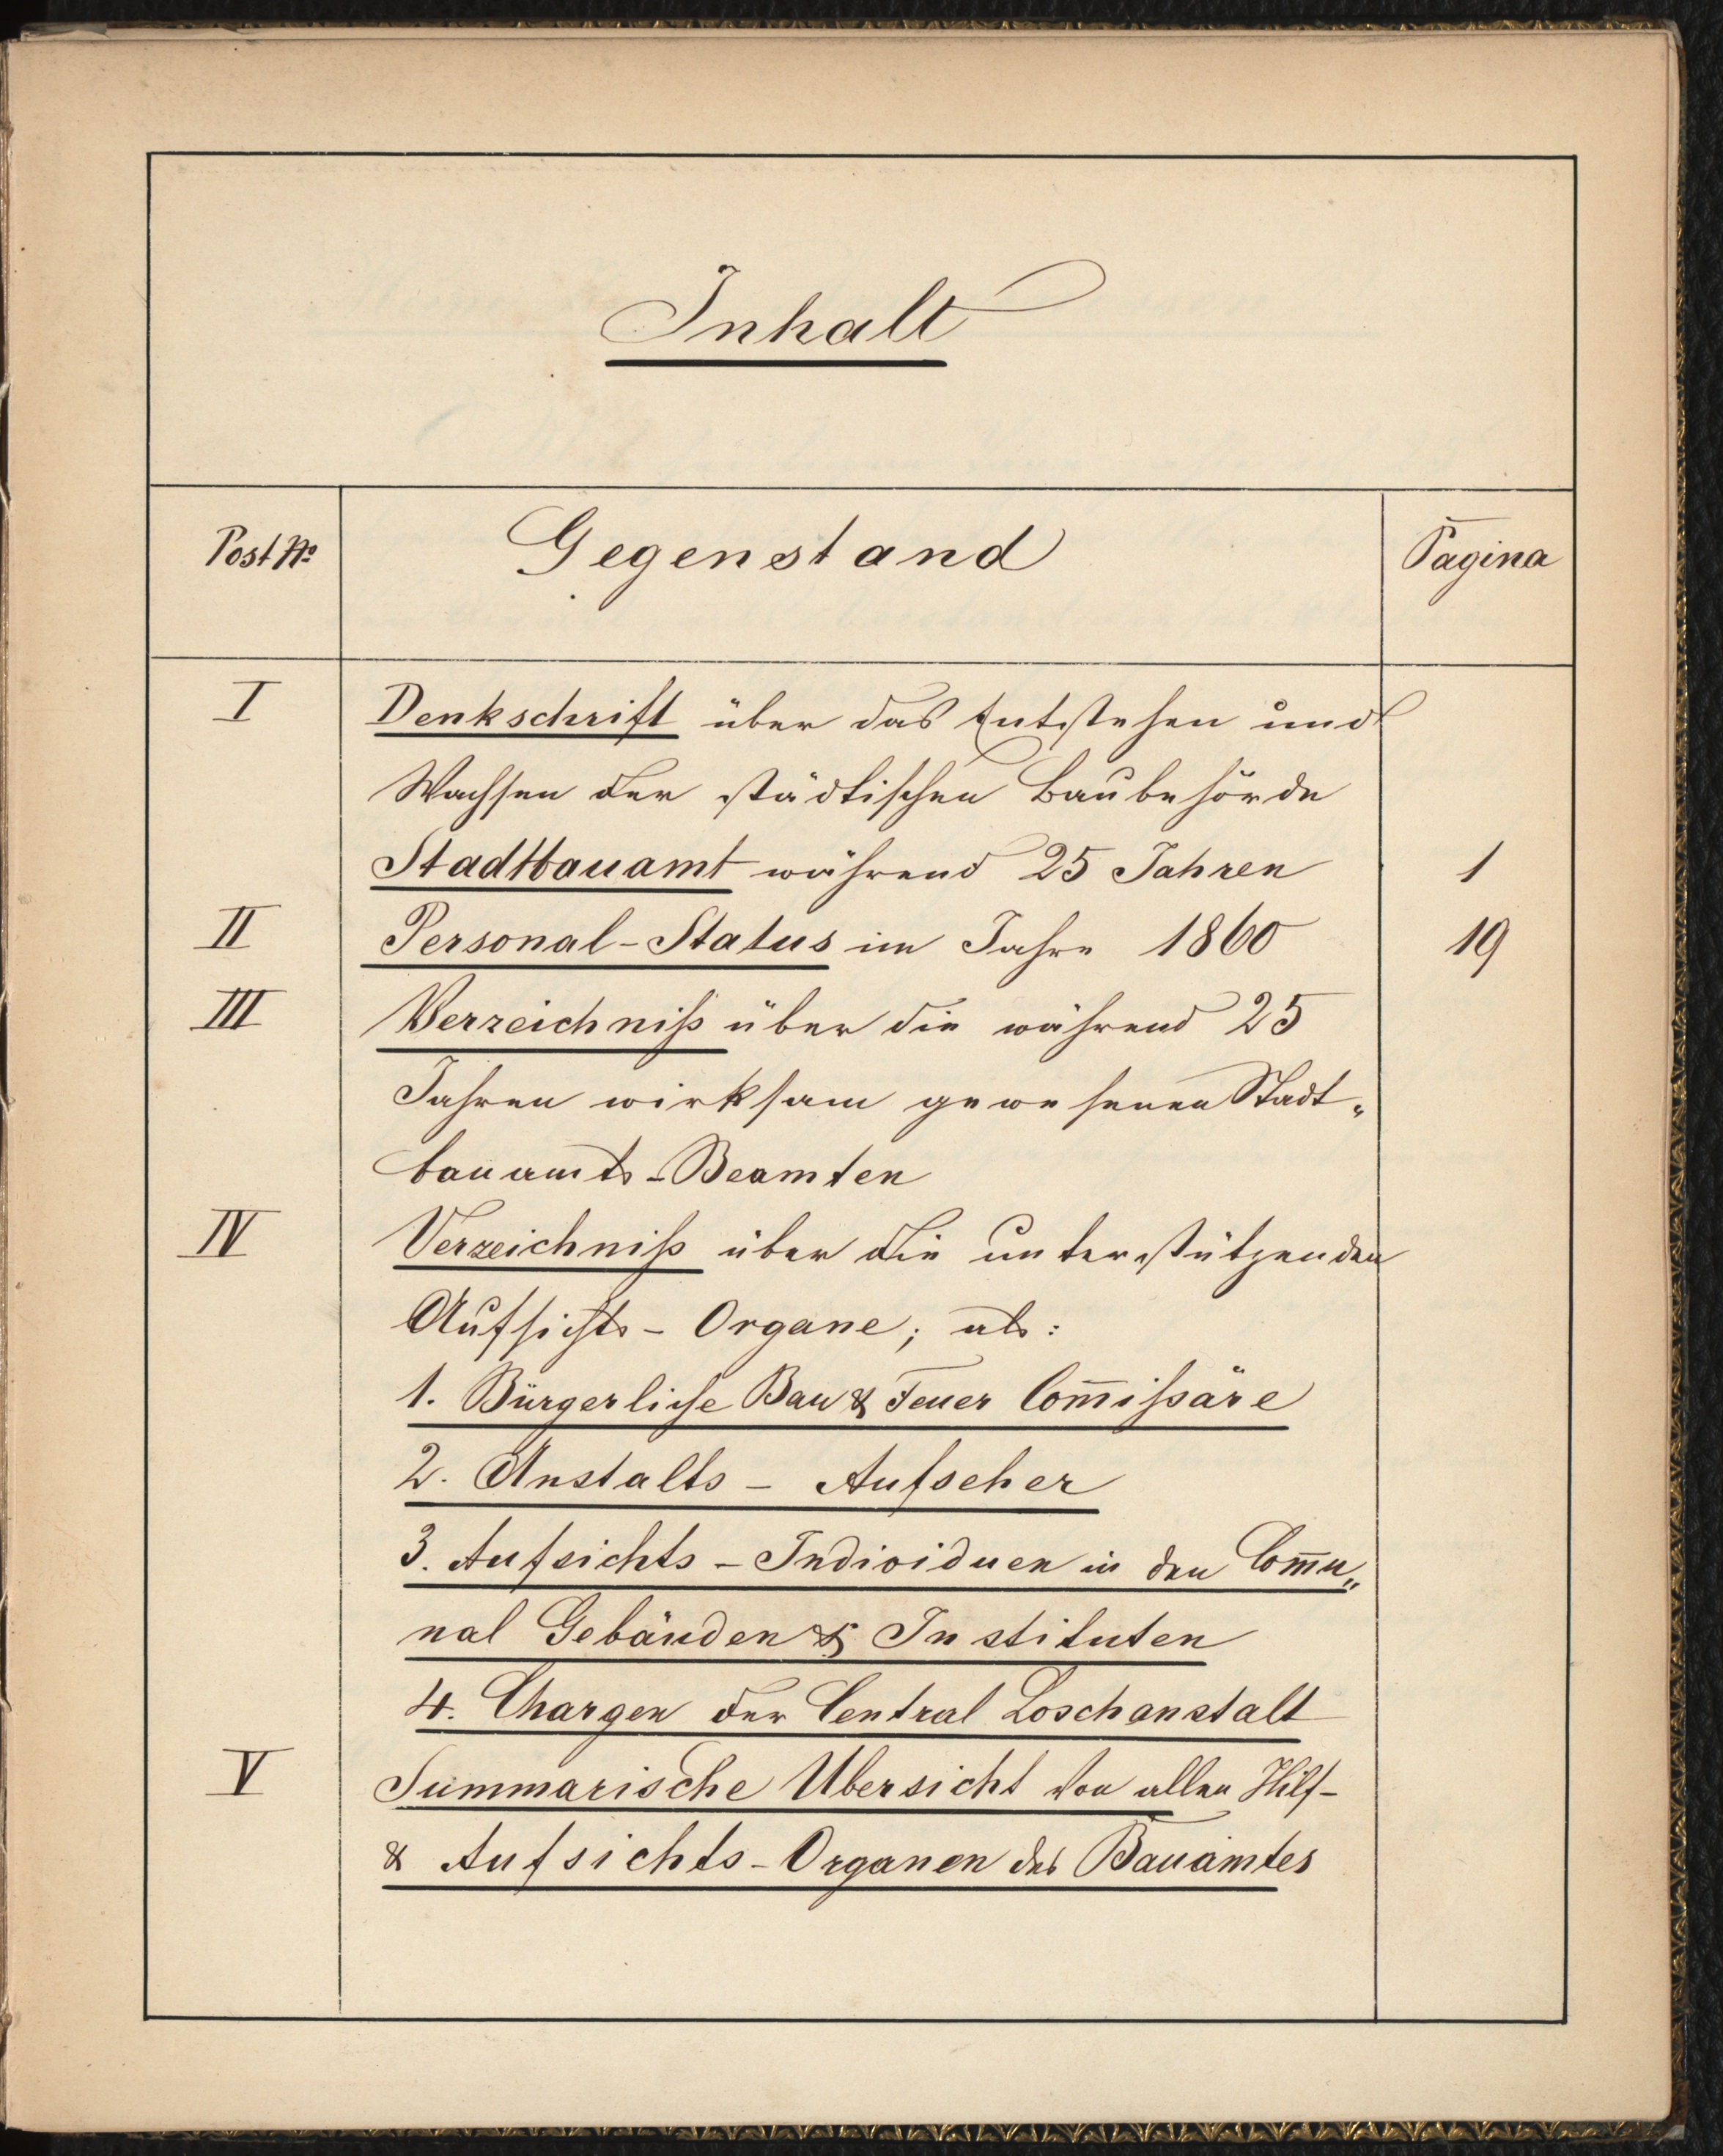 Inhalt
Post No Gegenstand Pagina
I Denkschrift über das Entstehen und
Wachsen der städtischen Baubehörde
Stadtbauamt während 25 Jahren 1
II Personal-Status im Jahre 1860 19
III Verzeichniß über die während 25
Jahren wirksam gewesenen Stadt„
bauamts-Beamten
IV Verzeichniß über die unterstützenden
Aufsichts-Organe; als:
1. Bürgerliche Bau & Feuer Com̄ißäre
2. Anstalts - Aufseher
3. Aufsichts-Individuen in den Com̄u„
nal Gebäuden & Instituten
4. Chargen der Central Loschanstalt
V Summarische Ubersicht von allen Hilf-
& Aufsichts-Organen des Bauamtes